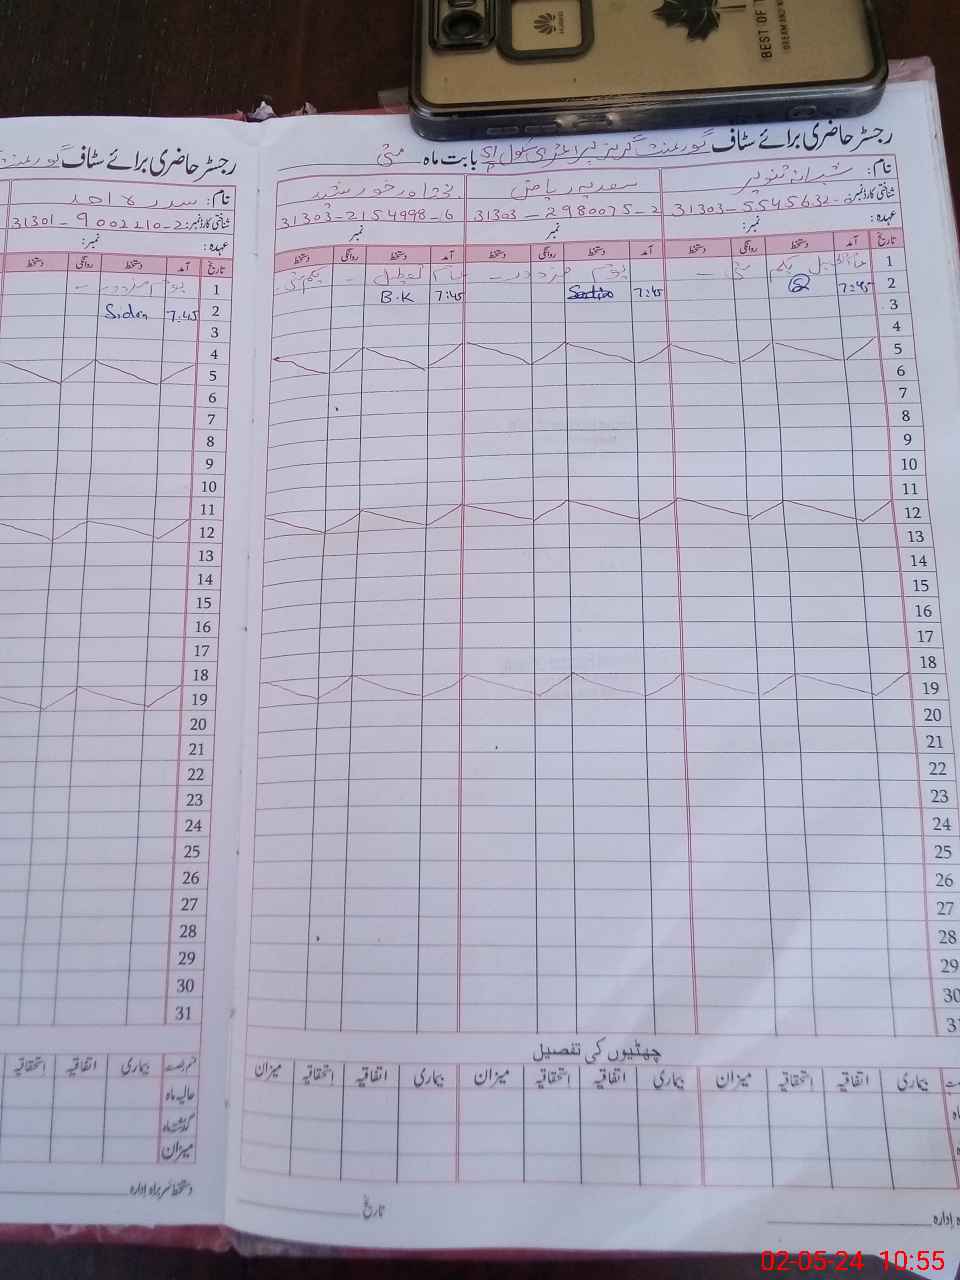 HUAWEI
BEST OF T
DREAM AND
رجسٹر حاضری برائے سٹاف گورنمنٹ گرلز پرائمری سکول بابت ماہ مئی
نام: شبانہ تنویر
سعدیہ ریاض
شناختی کارڈ نمبر: 31303-5545632-0
31303-2980075-2
31303-2154998-6
عہدہ: نمبر:
نمبر
نمبر
تاریخ آمد دستخط روانگی دستخط آمد دستخط روانگی دستخط آمد دستخط روانگی دستخط
1 یکم مئی یوم مزدور یکم مئی
2 7:45 7:45 7:45 B.K
3
4
5
6
7
8
9
10
11
12
13
14
15
16
17
18
19
20
21
22
23
24
25
26
27
28
29
30
31
چھٹیوں کی تفصیل
بیماری اتفاقیہ استحقاقیہ میزان بیماری اتفاقیہ استحقاقیہ میزان بیماری اتفاقیہ استحقاقیہ میزان
اہ ادارہ
تاریخ
رجسٹر حاضری برائے سٹاف گورنمنٹ
نام: سدرہ احمد
شناختی کارڈ نمبر: 31301-9002210-2
عہدہ: نمبر:
تاریخ آمد دستخط روانگی دستخط
1 یوم مزدور
2 7:45 Sidra
3
4
5
6
7
8
9
10
11
12
13
14
15
16
17
18
19
20
21
22
23
24
25
26
27
28
29
30
31
بیماری اتفاقیہ استحقاقیہ
حالیہ ماہ
گذشتہ ماہ
میزان
دستخط سربراہ ادارہ
02-05-24 10:55